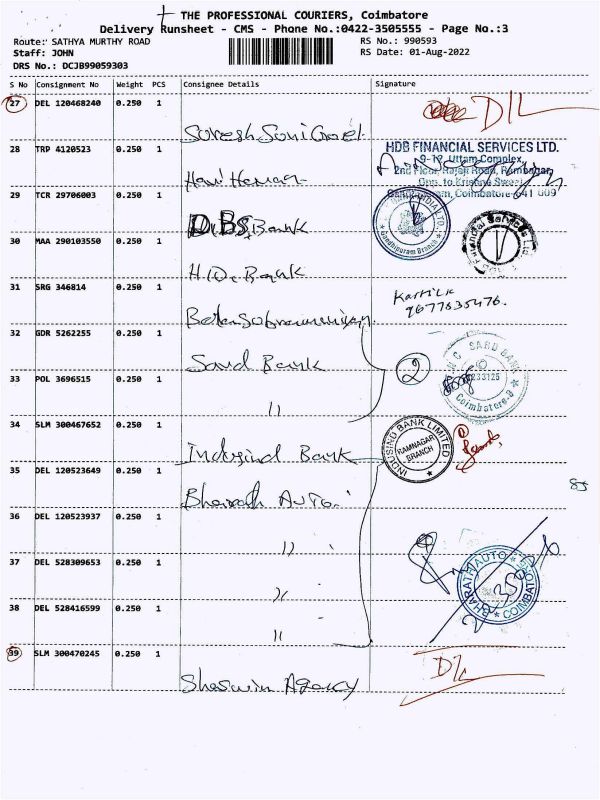 THE PROFESSIONAL COURIERS, Coimbatore
Delivery Runsheet - CMS - Phone No.:0422-3505555 - Page No.:3
Route: SATHYA MURTHY ROAD
RS No.: 990593
Staff: JOHN
RS Date: 01-Aug-2022
DRS No.: DCJB99059303
S No Consignment No Weight PCS Consignee Details Signature
27 DEL 120468240 0.250 1
D/L
Suresh Soni Goel
28 TRP 4120523 0.250 1
HDB FINANCIAL SERVICES LTD.
9-17, Uttam Complex,
2nd Floor, Rajaji Road, Ramnagar,
Coimbatore-641 009
29 TCR 29706003 0.250 1
DBS Bank
Gandhipuram Branch
30 MAA 290103550 0.250 1
Bank
31 SRG 346814 0.250 1
Karthik
9677635476.
Balasubramaniyan
32 GDR 5262255 0.250 1
Sard Bank
2
SARD BANK
Coimbatore-9
33 POL 3696515 0.250 1
"
34 SLM 300467652 0.250 1
INDUSIND BANK LIMITED
RAMNAGAR
BRANCH
Indusind Bank
35 DEL 120523649 0.250 1
Bharath Auto
85
36 DEL 120523937 0.250 1
"
37 DEL 528309653 0.250 1
BHARATH AUTO
COIMBATORE
"
38 DEL 528416599 0.250 1
"
39 SLM 300470245 0.250 1
D/L
Shaswin Agency